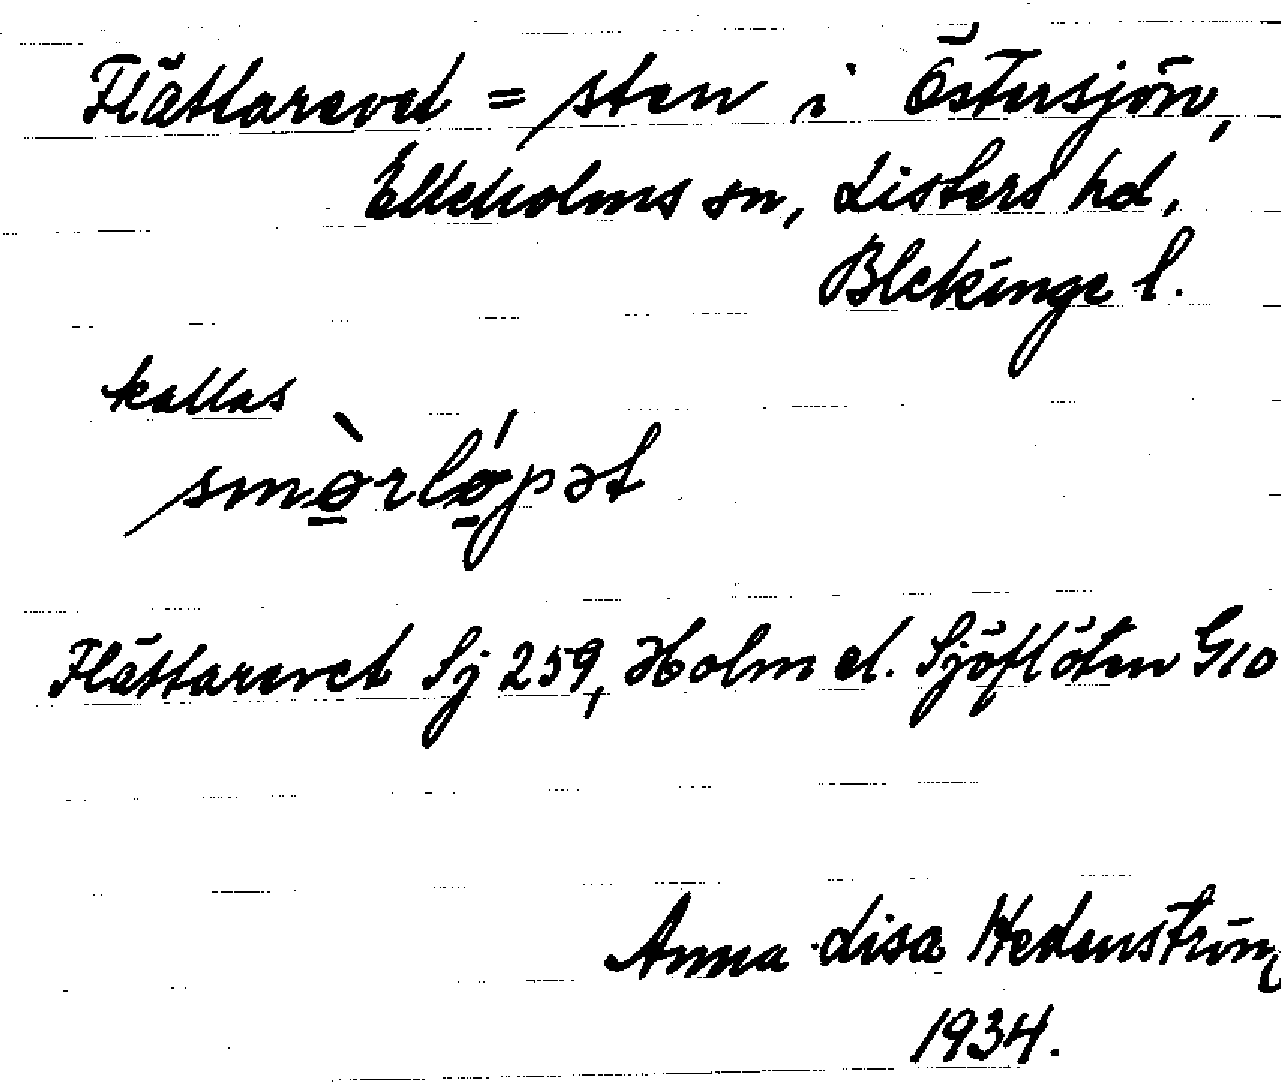 Flättarevet = sten i Östersjön,
Elleholms sn, Listers hd,
Blekinge l.
kallas
smø̠̀rlǿ̠pət
Flättarevet Sj 259, Holm el. Sjöflöten G10
Anna-Lisa Hedenström
1934.